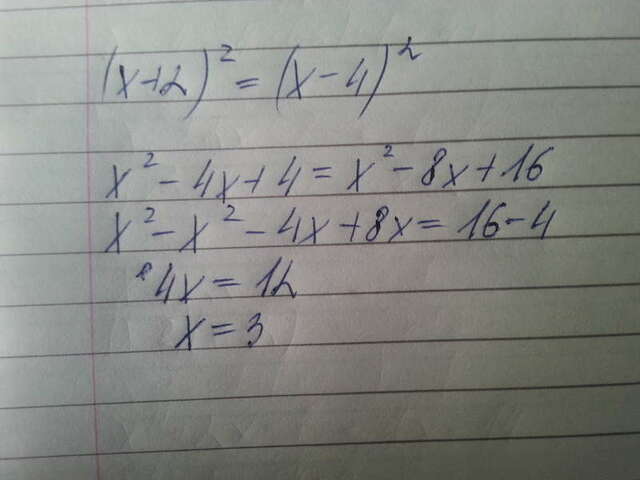 (x+2)² = (x-4)²
x² - 4x + 4 = x² - 8x + 16
x² - x² - 4x + 8x = 16 - 4
4x = 12
x = 3